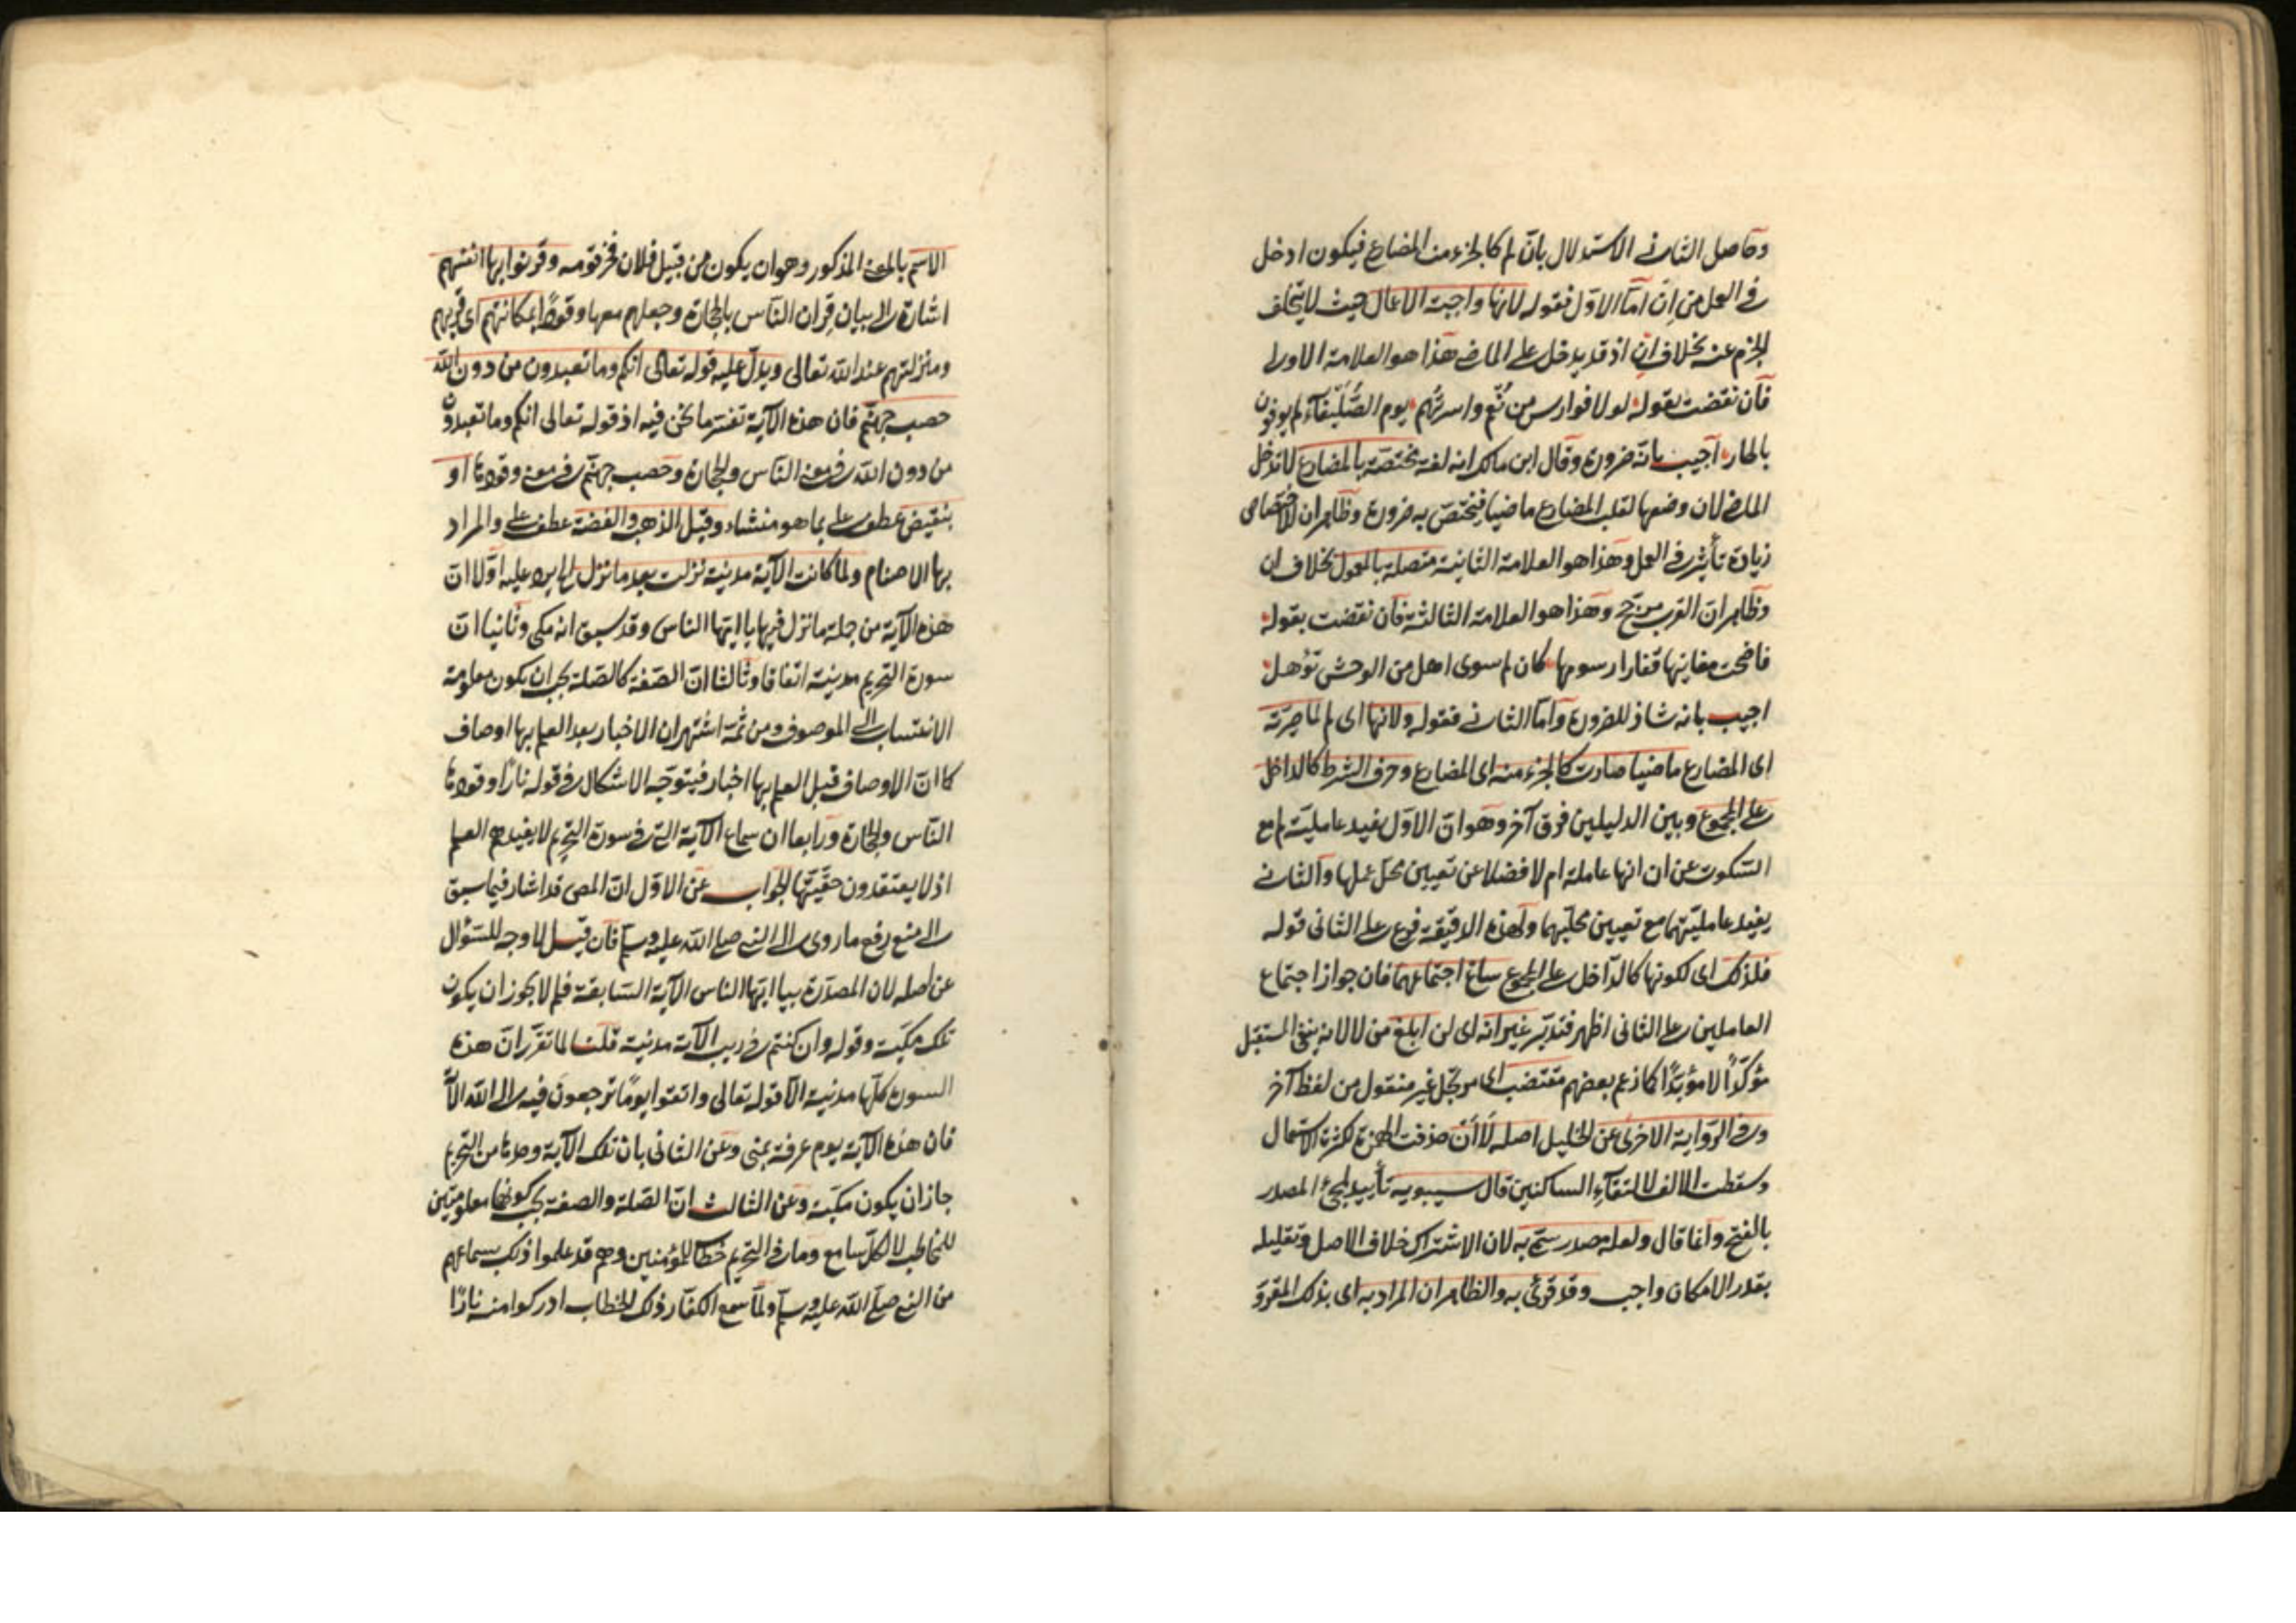 وحاصل الثاني الاستدلال بان لم كالجزء من المضارع فيكون ادخل
في العمل من ان اما الاول فقوله لانها واجبة الاعمال حيث لا يتخلف
الجزم عنه بخلاف ان اذ قد يدخل على الماضي هذا هو العلامة الاولى
فان نقضت بقوله لولا فوارس من نعم واسرتهم يوم الصليفاء لم يوفون
بالجار اجيب بانه ضرورة وقال ابن مالك انه لغة مختصة بالمضارع لا تدخل
الماضي لان وضعها لقلب المضارع ماضيا فيختص به ضرورة وظاهر ان للاختصاص
زيادة تأثير في العمل وهذا هو العلامة الثانية متصلة بالمعمول بخلاف ان
وظاهر ان القرب مرجح وهذا هو العلامة الثالثة فان نقضت بقوله
فاضحت مغانيها قفارا رسومها كان لم سوى اهل من الوحش تؤهل
اجيب بانه شاذ للضرورة واما الثاني فقوله ولانها اى لم لما صيرته
اى المضارع ماضيا صارت كالجزء منه اى المضارع وحرف الشرط كالداخل
على المجموع وبين الدليلين فرق آخر وهو ان الاول يفيد عاملية لم مع
السكوت عن ان انها عاملة ام لا فضلا عن تعيين محل عملها والثاني
يفيد عامليتهما مع تعيين محليهما ولهذه الدقيقة فرع على الثاني قوله
فلذلك اى لكونها كالداخل على المجموع ساغ اجتماعهما فان جواز اجتماع
العاملين على الثاني اظهر فتدبر غير انه اى لن ابلغ من لا لانه ينفي المستقبل
مؤكدا لا مؤبدا كما زعم بعضهم مقتضب اى مرتجل غير منقول من لفظ آخر
وفي الرواية الاخرى عن الخليل اصله لا ان حذفت الهمزة لكثرة الاستعمال
وسقطت الالف لالتقاء الساكنين قال سيبويه تأييد لمجئ المصدر
بالفتح وانما قال ولعله مصدر سمي به لان الاشتراك خلاف الاصل وتقليله
بقدر الامكان واجب وقد قرئ به والظاهر ان المراد به اى بذلك المقروّ
الاسم بالمعنى المذكور وهو ان يكون من قبيل فلان فخر قومه وقرنوا بها انفسهم
اشارة الى بيان قران الناس بالحجارة وجعلهم معها وقودا بمكانتهم اى قربهم
ومنزلتهم عند الله تعالى ويدل عليه قوله تعالى انكم وما تعبدون من دون الله
حصب جهنم فان هذه الآية تفسر ما نحن فيه اذ قوله تعالى انكم وما تعبدون
من دون الله في معنى الناس والحجارة وحصب جهنم في معنى وقودها او
بنقيض عطف على بما هو منشاء وقيل الذهب والفضة عطف على والمراد
بها الاصنام ولما كانت الآية مدنية نزلت بعد ما نزل الخ يرد عليه اولا ان
هذه الآية من جملة ما نزل فيها يا ايتها الناس وقد سبق انه مكي وثانيا ان
سورة التحريم مدنية اتفاقا وثالثا ان الصفة كالصلة يجب ان يكون معلومة
الانتساب الى الموصوف ومن ثمة اشتهر ان الاخبار بعد العلم بها اوصاف
كما ان الاوصاف قبل العلم بها اخبار فيتوجه الاشكال في قوله نارا وقودها
الناس والحجارة ورابعا ان سماع الآية التي في سورة التحريم لا يفيدهم العلم
اذ لا يعتقدون حقيتها الجواب عن الاول ان المص قد اشار فيما سبق
الى منع رفع ما روى الى النبي صلى الله عليه وسلم فان قيل لا وجه للسؤال
عن اصله لان المصدرة بيا ايتها الناس الآية السابقة فلم لا يجوز ان يكون
تلك مكية وقوله وان كنتم في ريب الآية مدنية قلنا لما تقرر ان هذه
السورة كلها مدنية الا قوله تعالى واتقوا يوما ترجعون فيه الى الله الآ
فان هذه الآية يوم عرفة بمنى وعن الثاني بان تلك الآية وحدها من التحريم
جاز ان يكون مكية وعن الثالث ان الصلة والصفة يجب كونهما معلومتين
للمخاطب لا لكل سامع وما في التحريم خطاب للمؤمنين وهم قد علموا ذلك بسماعهم
من النبي صلى الله عليه وسلم ولما سمع الكفار ذلك الخطاب ادركوا منه نارا